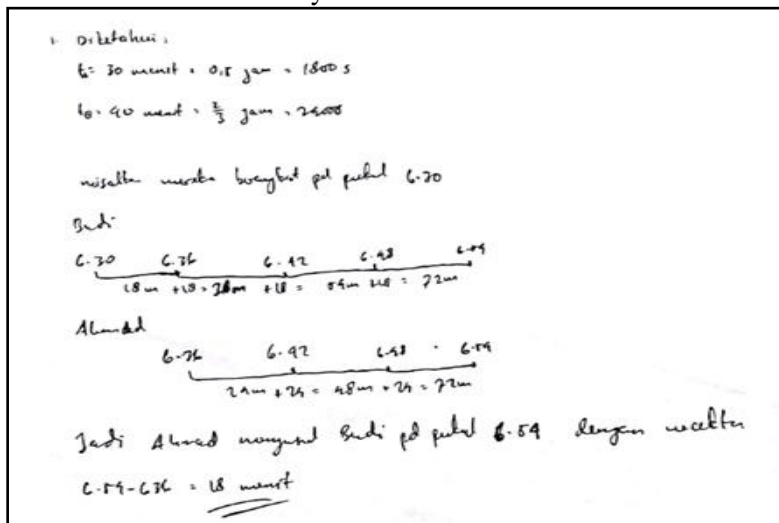 1. Diketahui:
t = 30 menit = 0,5 jam = 1800 s
t = 40 menit = 2/3 jam = 2400
misalkan mereka berangkat pd pukul 6.30
Budi
6.30 6.36 6.42 6.48 6.54
18m +18 = 36m +18 = 54m +18 = 72m
Ahmad
6.36 6.42 6.48 6.54
24m + 24 = 48m + 24 = 72m
Jadi Ahmad menyusul Budi pd pukul 6.54 dengan
6.54 - 6.36 = 18 menit